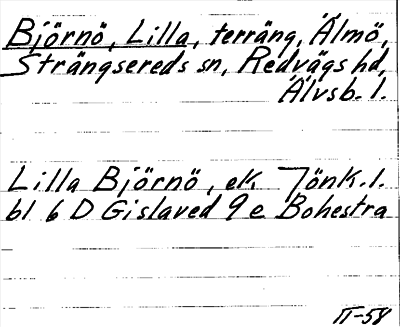 Björnö, Lilla, terräng, Älmö,
Strängsereds sn, Redvägs hd,
Älvsb. l.
Lilla Björnö, ek. Jönk. l.
bl 6 D Gislaved 9 e Bohestra
II-58